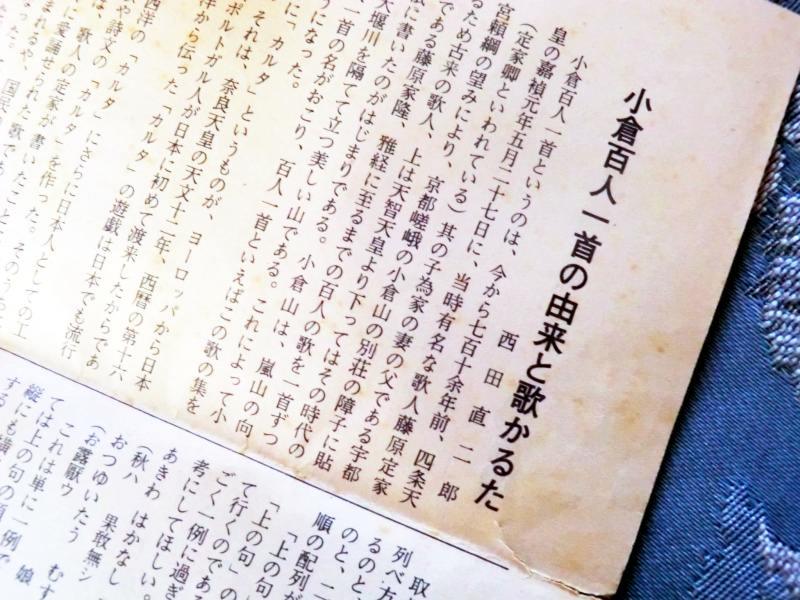 小倉百人一首の由来と歌かるた
西田直二郎
小倉百人一首というのは、今から七百十余年前、四条天
皇の嘉禎元年五月二十七日に、当時有名な歌人藤原定家
(定家卿といわれている)其の子為家の妻の父である宇都
宮頼綱の望みにより、京都嵯峨の小倉山の別荘の障子に貼
るため古来の歌人、上は天智天皇より下ってはその時代の
である藤原家隆、雅経に至るまでの百人の歌を一首ずつ
に書いたのがはじまりである。小倉山は、嵐山の向
大堰川を隔てて立つ美しい山である。これによって小
一首の名がおこり、百人一首といえばこの歌の集を
うになった。
カルタ」というものが、ヨーロッパから日本
それは、奈良天皇の天文十二年、西暦の第十六
ポルトガル人が日本に初めて渡来したからであ
洋から伝った「カルタ」の遊戯は日本でも流行
西洋の「カルタ」にさらに日本人としての工
や詩文の「カルタ」を作った。そのう
は、歌人の定家が書いたこと
に愛誦せられた歌であ
国民
取
列べ方
るのと、
のと、二
順の配列が
「上の句
「上の句」の
て行くのである
ごく一例に過ぎ
考にしてほしい。
あきわ はかなし
(秋ハ 果敢無シ
おつゆいたう むす
(お露厭ウ 娘
これは単に一例で
ては上の句の頭
縦にも横
する